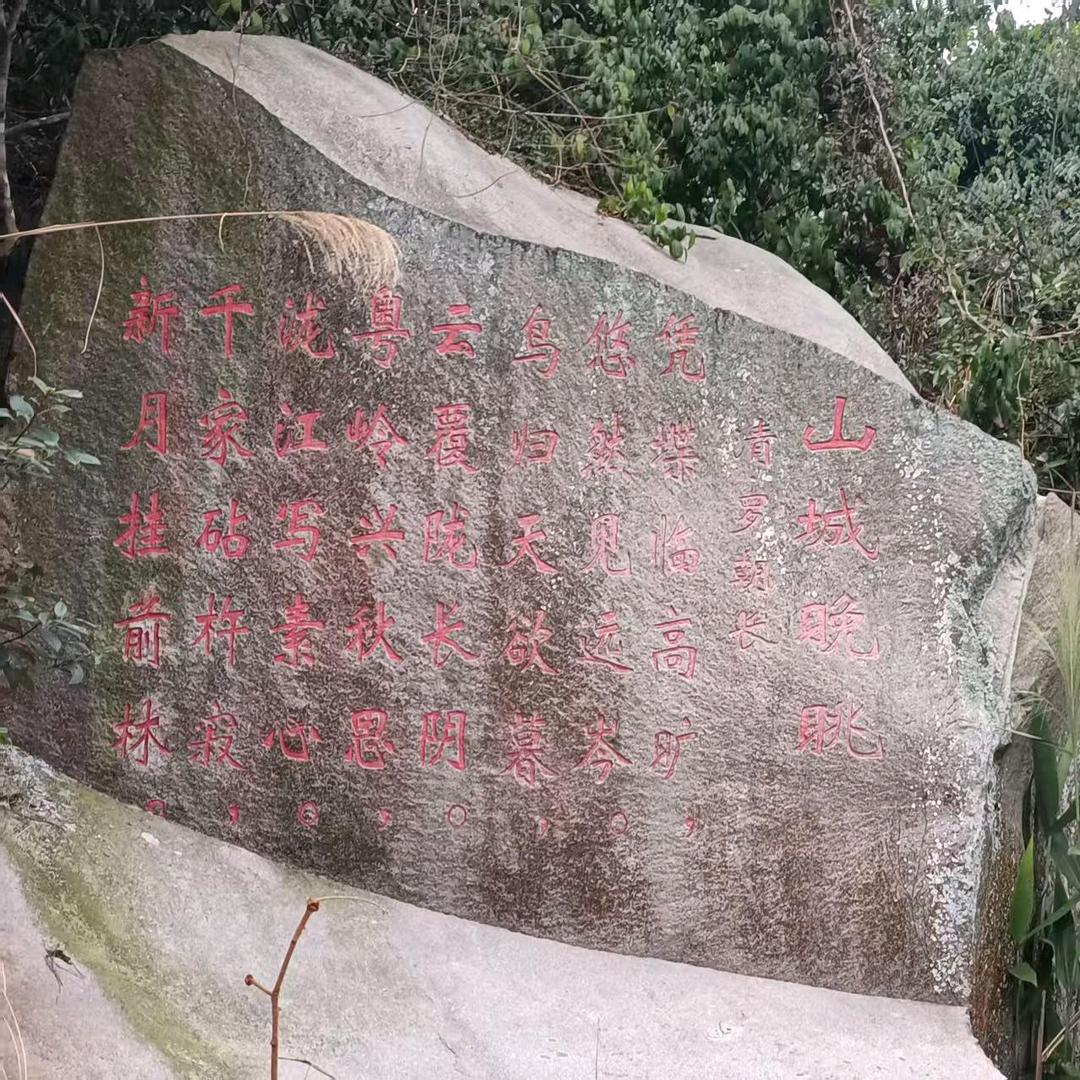 山城晚眺
清罗朝长
凭堞临高旷，
悠然见远岑。
鸟归天欲暮，
云覆陇长阴。
粤岭兴秋思，
泷江写素心。
千家砧杵寂，
新月挂前林。